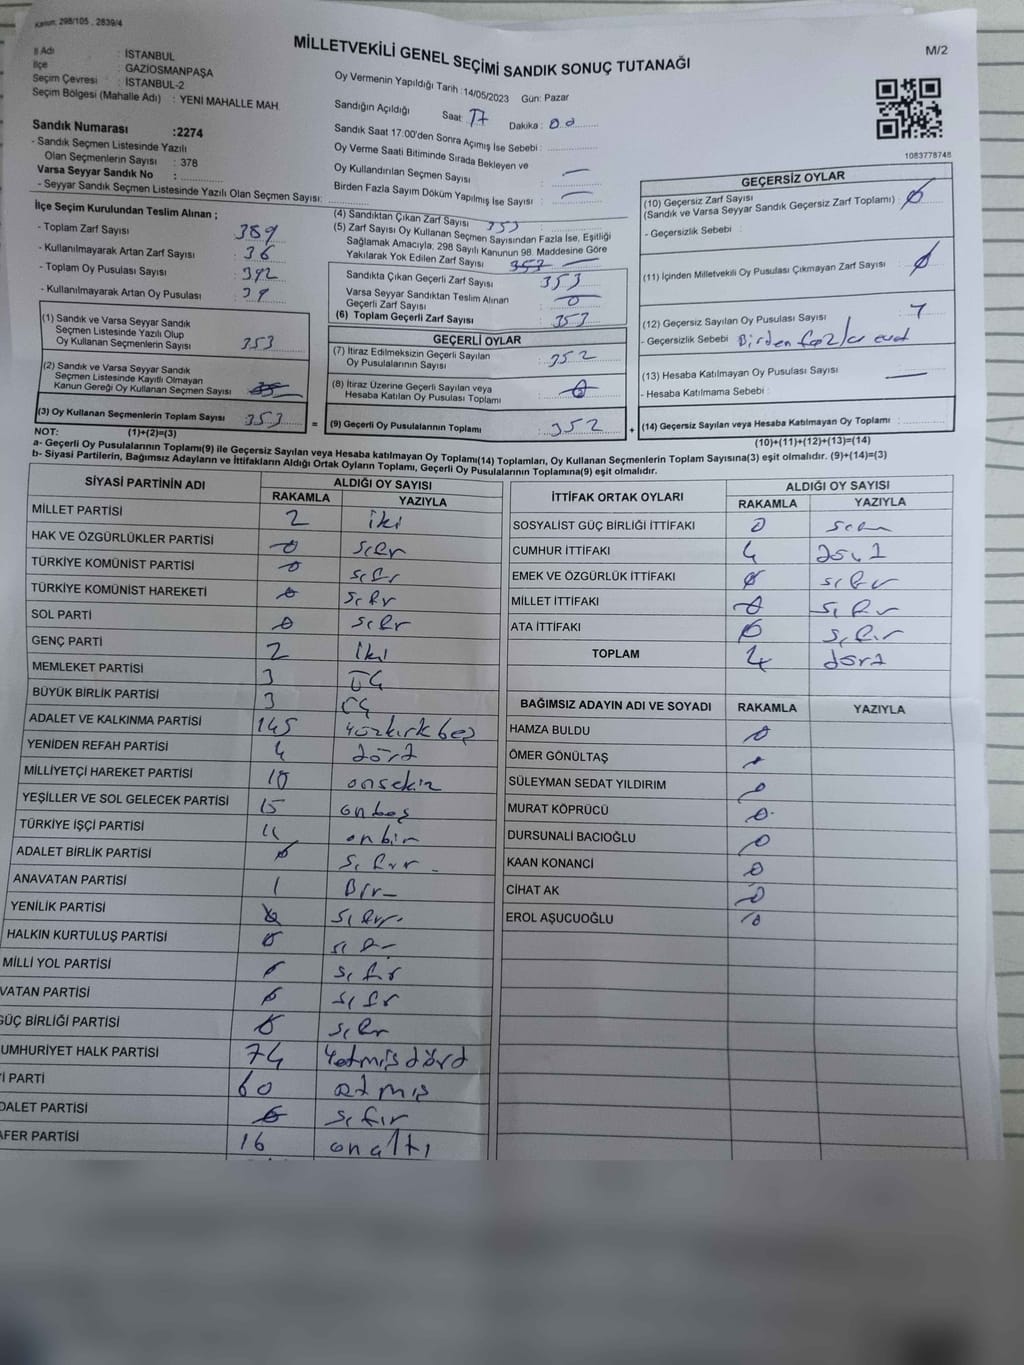 Kanun: 298/105 , 2839/4
M/2
MİLLETVEKİLİ GENEL SEÇİMİ SANDIK SONUÇ TUTANAĞI
İl Adı : İSTANBUL
İlçe : GAZİOSMANPAŞA
Seçim Çevresi : İSTANBUL-2
Seçim Bölgesi (Mahalle Adı) : YENİ MAHALLE MAH.
Sandık Numarası :2274
- Sandık Seçmen Listesinde Yazılı
Olan Seçmenlerin Sayısı : 378
Varsa Seyyar Sandık No :
- Seyyar Sandık Seçmen Listesinde Yazılı Olan Seçmen Sayısı:
Oy Vermenin Yapıldığı Tarih :14/05/2023 Gün: Pazar
Sandığın Açıldığı Saat: 17 Dakika : 00
Sandık Saat 17:00'den Sonra Açımış İse Sebebi :
Oy Verme Saati Bitiminde Sırada Bekleyen ve
Oy Kullandırılan Seçmen Sayısı : —
Birden Fazla Sayım Döküm Yapılmış İse Sayısı : —
1083778748
İlçe Seçim Kurulundan Teslim Alınan ;
- Toplam Zarf Sayısı : 389
- Kullanılmayarak Artan Zarf Sayısı : 36
- Toplam Oy Pusulası Sayısı : 392
- Kullanılmayarak Artan Oy Pusulası : 39
(1) Sandık ve Varsa Seyyar Sandık
Seçmen Listesinde Yazılı Olup
Oy Kullanan Seçmenlerin Sayısı : 353
(2) Sandık ve Varsa Seyyar Sandık
Seçmen Listesinde Kayıtlı Olmayan
Kanun Gereği Oy Kullanan Seçmen Sayısı :
(3) Oy Kullanan Seçmenlerin Toplam Sayısı : 353
(4) Sandıktan Çıkan Zarf Sayısı : 353
(5) Zarf Sayısı Oy Kullanan Seçmen Sayısından Fazla İse, Eşitliği
Sağlamak Amacıyla, 298 Sayılı Kanunun 98. Maddesine Göre
Yakılarak Yok Edilen Zarf Sayısı : 353 —
Sandıkta Çıkan Geçerli Zarf Sayısı : 353
Varsa Seyyar Sandıktan Teslim Alınan
Geçerli Zarf Sayısı : 0
(6) Toplam Geçerli Zarf Sayısı : 353
GEÇERLİ OYLAR
(7) İtiraz Edilmeksizin Geçerli Sayılan
Oy Pusulalarının Sayısı : 352
(8) İtiraz Üzerine Geçerli Sayılan veya
Hesaba Katılan Oy Pusulası Toplamı : 0
= (9) Geçerli Oy Pusulalarının Toplamı : 352
GEÇERSİZ OYLAR
(10) Geçersiz Zarf Sayısı
(Sandık ve Varsa Seyyar Sandık Geçersiz Zarf Toplamı) : 0
- Geçersizlik Sebebi :
(11) İçinden Milletvekili Oy Pusulası Çıkmayan Zarf Sayısı : 0
(12) Geçersiz Sayılan Oy Pusulası Sayısı :
- Geçersizlik Sebebi : Birden fazla evet
(13) Hesaba Katılmayan Oy Pusulası Sayısı : —
- Hesaba Katılmama Sebebi :
+ (14) Geçersiz Sayılan veya Hesaba Katılmayan Oy Toplamı :
NOT: (1)+(2)=(3)
(10)+(11)+(12)+(13)=(14)
a- Geçerli Oy Pusulalarının Toplamı(9) ile Geçersiz Sayılan veya Hesaba katılmayan Oy Toplamı(14) Toplamları, Oy Kullanan Seçmenlerin Toplam Sayısına(3) eşit olmalıdır. (9)+(14)=(3)
b- Siyasi Partilerin, Bağımsız Adayların ve İttifakların Aldığı Ortak Oyların Toplamı, Geçerli Oy Pusulalarının Toplamına(9) eşit olmalıdır.
SİYASİ PARTİNİN ADI ALDIĞI OY SAYISI
RAKAMLA YAZIYLA
MİLLET PARTİSİ 2 iki
HAK VE ÖZGÜRLÜKLER PARTİSİ 0 sıfır
TÜRKİYE KOMÜNİST PARTİSİ 0 sıfır
TÜRKİYE KOMÜNİST HAREKETİ 0 sıfır
SOL PARTİ 0 sıfır
GENÇ PARTİ 2 iki
MEMLEKET PARTİSİ 3 üç
BÜYÜK BİRLİK PARTİSİ 3 üç
ADALET VE KALKINMA PARTİSİ 145 yüzkırkbeş
YENİDEN REFAH PARTİSİ 4 dört
MİLLİYETÇİ HAREKET PARTİSİ 18 onsekiz
YEŞİLLER VE SOL GELECEK PARTİSİ 15 onbeş
TÜRKİYE İŞÇİ PARTİSİ 11 onbir
ADALET BİRLİK PARTİSİ 0 sıfır
ANAVATAN PARTİSİ 1 Bir
YENİLİK PARTİSİ 0 sıfır
HALKIN KURTULUŞ PARTİSİ 0 sıfır
MİLLİ YOL PARTİSİ 0 sıfır
VATAN PARTİSİ 0 sıfır
GÜÇ BİRLİĞİ PARTİSİ 0 sıfır
UMHURİYET HALK PARTİSİ 74 yetmişdörd
İ PARTİ 60 atmış
DALET PARTİSİ 0 sıfır
AFER PARTİSİ 16 onaltı
İTTİFAK ORTAK OYLARI ALDIĞI OY SAYISI
RAKAMLA YAZIYLA
SOSYALİST GÜÇ BİRLİĞİ İTTİFAKI 0 sıfır
CUMHUR İTTİFAKI 4 dört
EMEK VE ÖZGÜRLÜK İTTİFAKI 0 sıfır
MİLLET İTTİFAKI 0 sıfır
ATA İTTİFAKI 0 sıfır
TOPLAM 4 dört
BAĞIMSIZ ADAYIN ADI VE SOYADI RAKAMLA YAZIYLA
HAMZA BULDU 0
ÖMER GÖNÜLTAŞ 0
SÜLEYMAN SEDAT YILDIRIM 0
MURAT KÖPRÜCÜ 0
DURSUNALİ BACIOĞLU 0
KAAN KONANCİ 0
CİHAT AK 0
EROL AŞUCUOĞLU 0